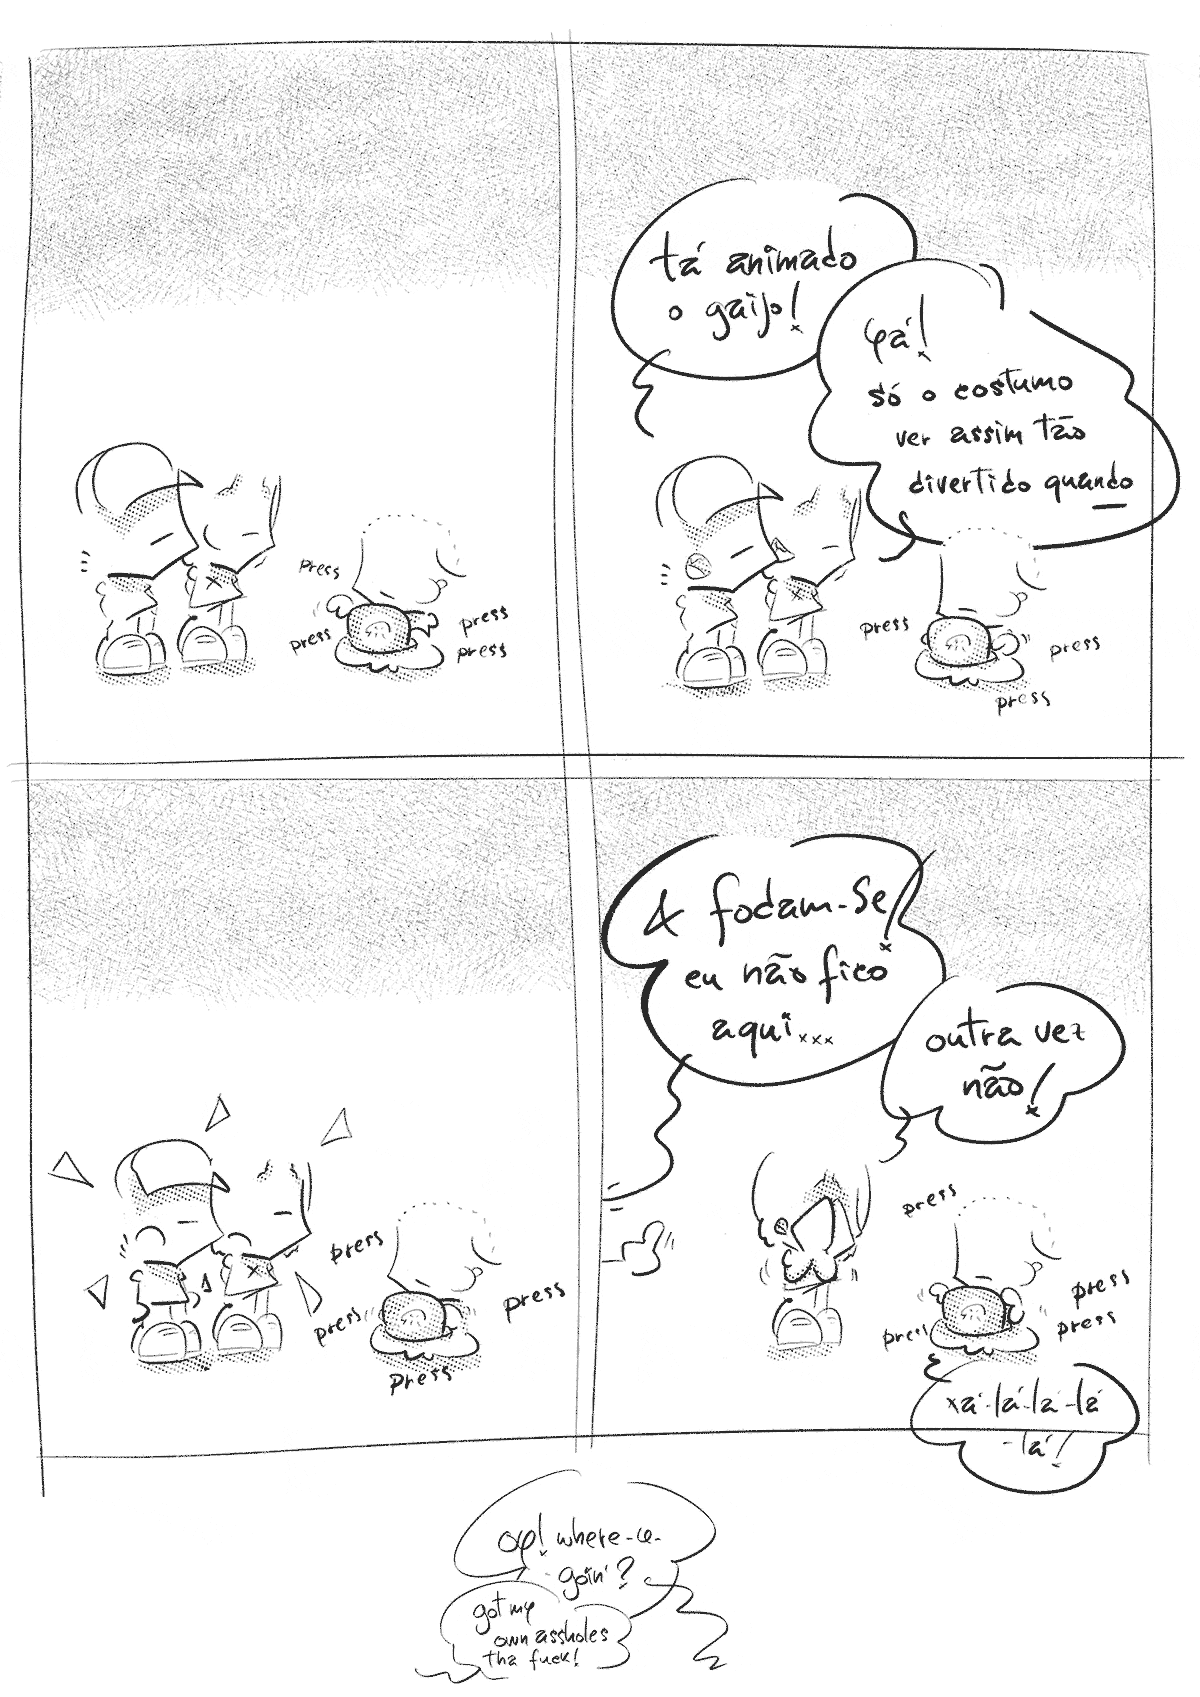 press
press
press
press
tá animado
o gaijo!
yá!
só o costumo
ver assim tão
divertido quando
press
press
press
press
press
press
press
& fodam-se!
eu não fico
aqui...
outra vez
não!
press
press
press
press
xá-lá-lá-lá
-lá!
oy! where-u-
goin'?
got my
own assholes
tha fuck!